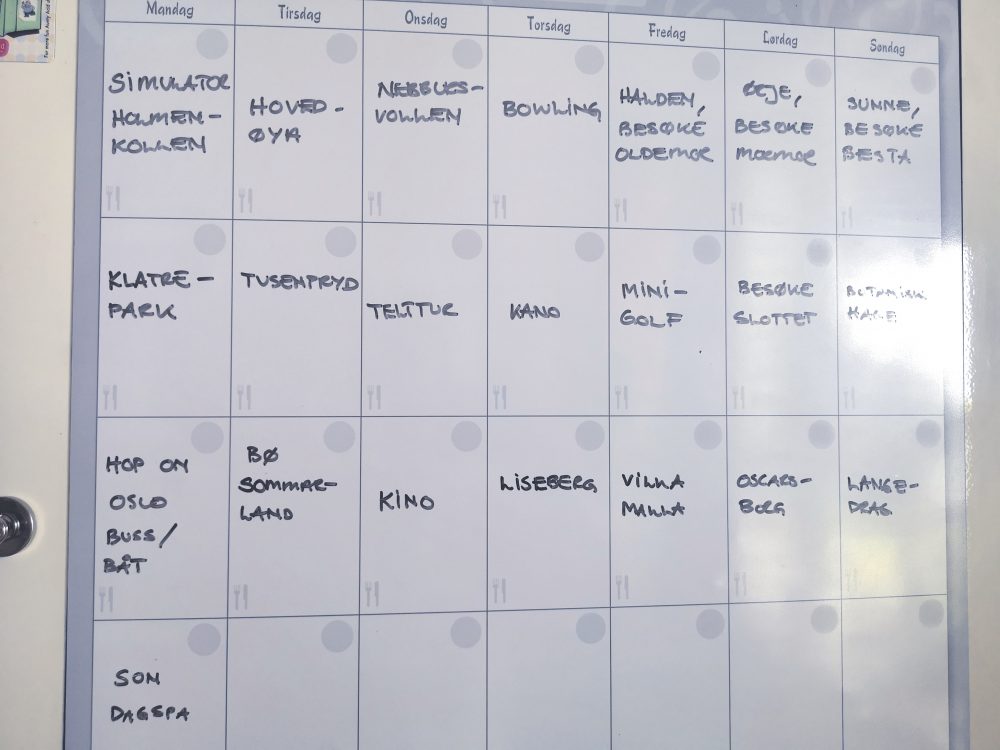 Mandag
Tirsdag
Onsdag
Torsdag
Fredag
Lørdag
Søndag
SIMULATOR
HOLMEN-
KOLLEN
HOVED-
ØYA
VOLLEN
BOWLING
HALDEN,
BESØKE
OLDEMOR
BESØKE
MORMOR
SUNNE,
BESØKE
BESTA
KLATRE-
PARK
TUSENFRYD
TELTTUR
KANO
MINI-
GOLF
BESØKE
SLOTTET
BOTANISK
HAGE
HOP ON
OSLO
BUSS/
BÅT
BØ
SOMMAR-
LAND
KINO
LISEBERG
VILLA
MALLA
OSCARS-
BORG
LANGE-
DRAG
SON
DAGSPA